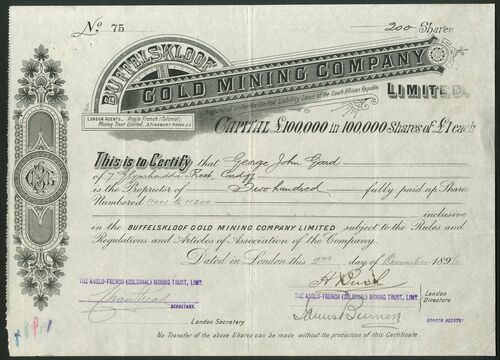 No 75
200 Shares
BUFFELSKLOOF
GOLD MINING COMPANY
LIMITED.
Registered under the Limited Liability Laws of the South African Republic
LONDON AGENTS, Anglo French (Colonial)
Mining Trust Limited. 3, FINSBURY HOUSE, E.C.
CAPITAL £100,000 IN 100,000 SHARES OF £1 each
This is to Certify that George John Gard
of 7 Road, Cardiff
is the Proprietor of Two hundred fully paid up Shares
Numbered 11001 to 11200
inclusive
in the BUFFELSKLOOF GOLD MINING COMPANY LIMITED subject to the Rules and
Regulations and Articles of Association of the Company.
Dated in London this 2nd day of December 1896
THE ANGLO-FRENCH (COLONIAL) MINING TRUST, LIMD
SECRETARY.
London Secretary
THE ANGLO-FRENCH (COLONIAL) MINING TRUST, LIMD
London
Directors
LONDON AGENTS.
No Transfer of the above Shares can be made without the production of this Certificate.